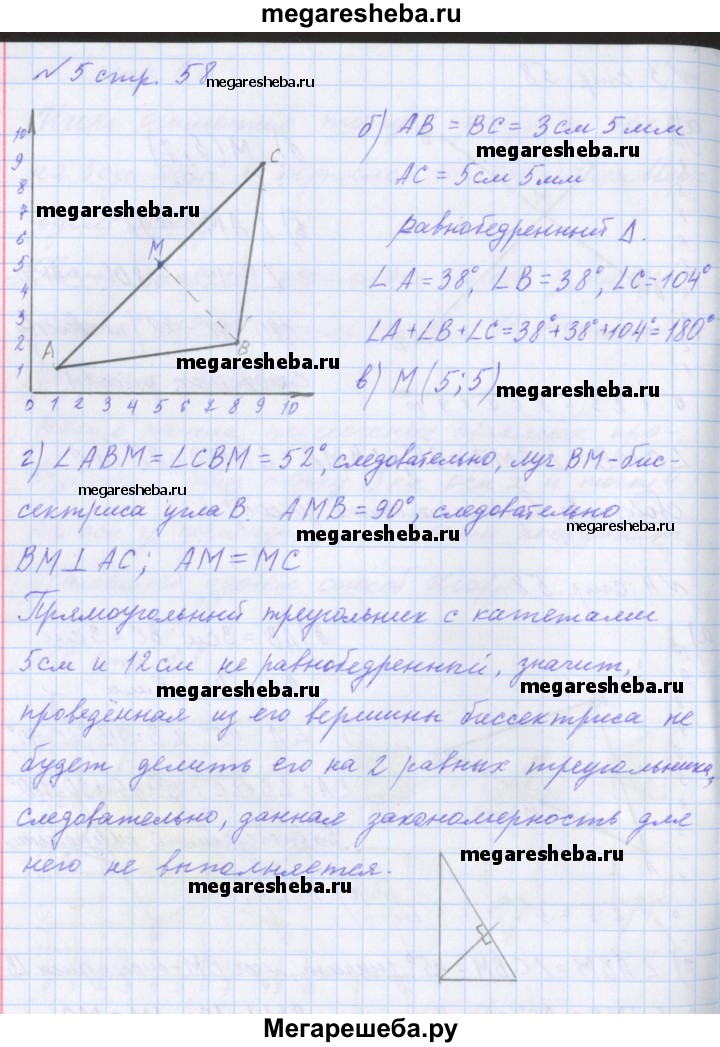 megaresheba.ru
№ 5 стр. 58
megaresheba.ru
10
9
8
7
6
5
4
3
2
1
0 1 2 3 4 5 6 7 8 9 10
A
M
C
B
megaresheba.ru
megaresheba.ru
б) AB = BC = 3см 5мм
megaresheba.ru
AC = 5см 5мм
равнобедренный Δ.
∠A = 38°, ∠B = 38°, ∠C = 104°
∠A + ∠B + ∠C = 38° + 38° + 104° = 180°
в) M (5; 5)
megaresheba.ru
г) ∠ABM = ∠CBM = 52°, следовательно, луч BM – бис-
megaresheba.ru
сектриса угла B. AMB = 90°, следовательно
megaresheba.ru
BM ⊥ AC; AM = MC
megaresheba.ru
Прямоугольный треугольник с катетами
5см и 12см не равнобедренный, значит,
megaresheba.ru
megaresheba.ru
проведённая из его вершины биссектриса не
будет делить его на 2 равных треугольника,
следовательно, данная закономерность для
него не выполняется.
megaresheba.ru
megaresheba.ru
Мегарешеба.ру